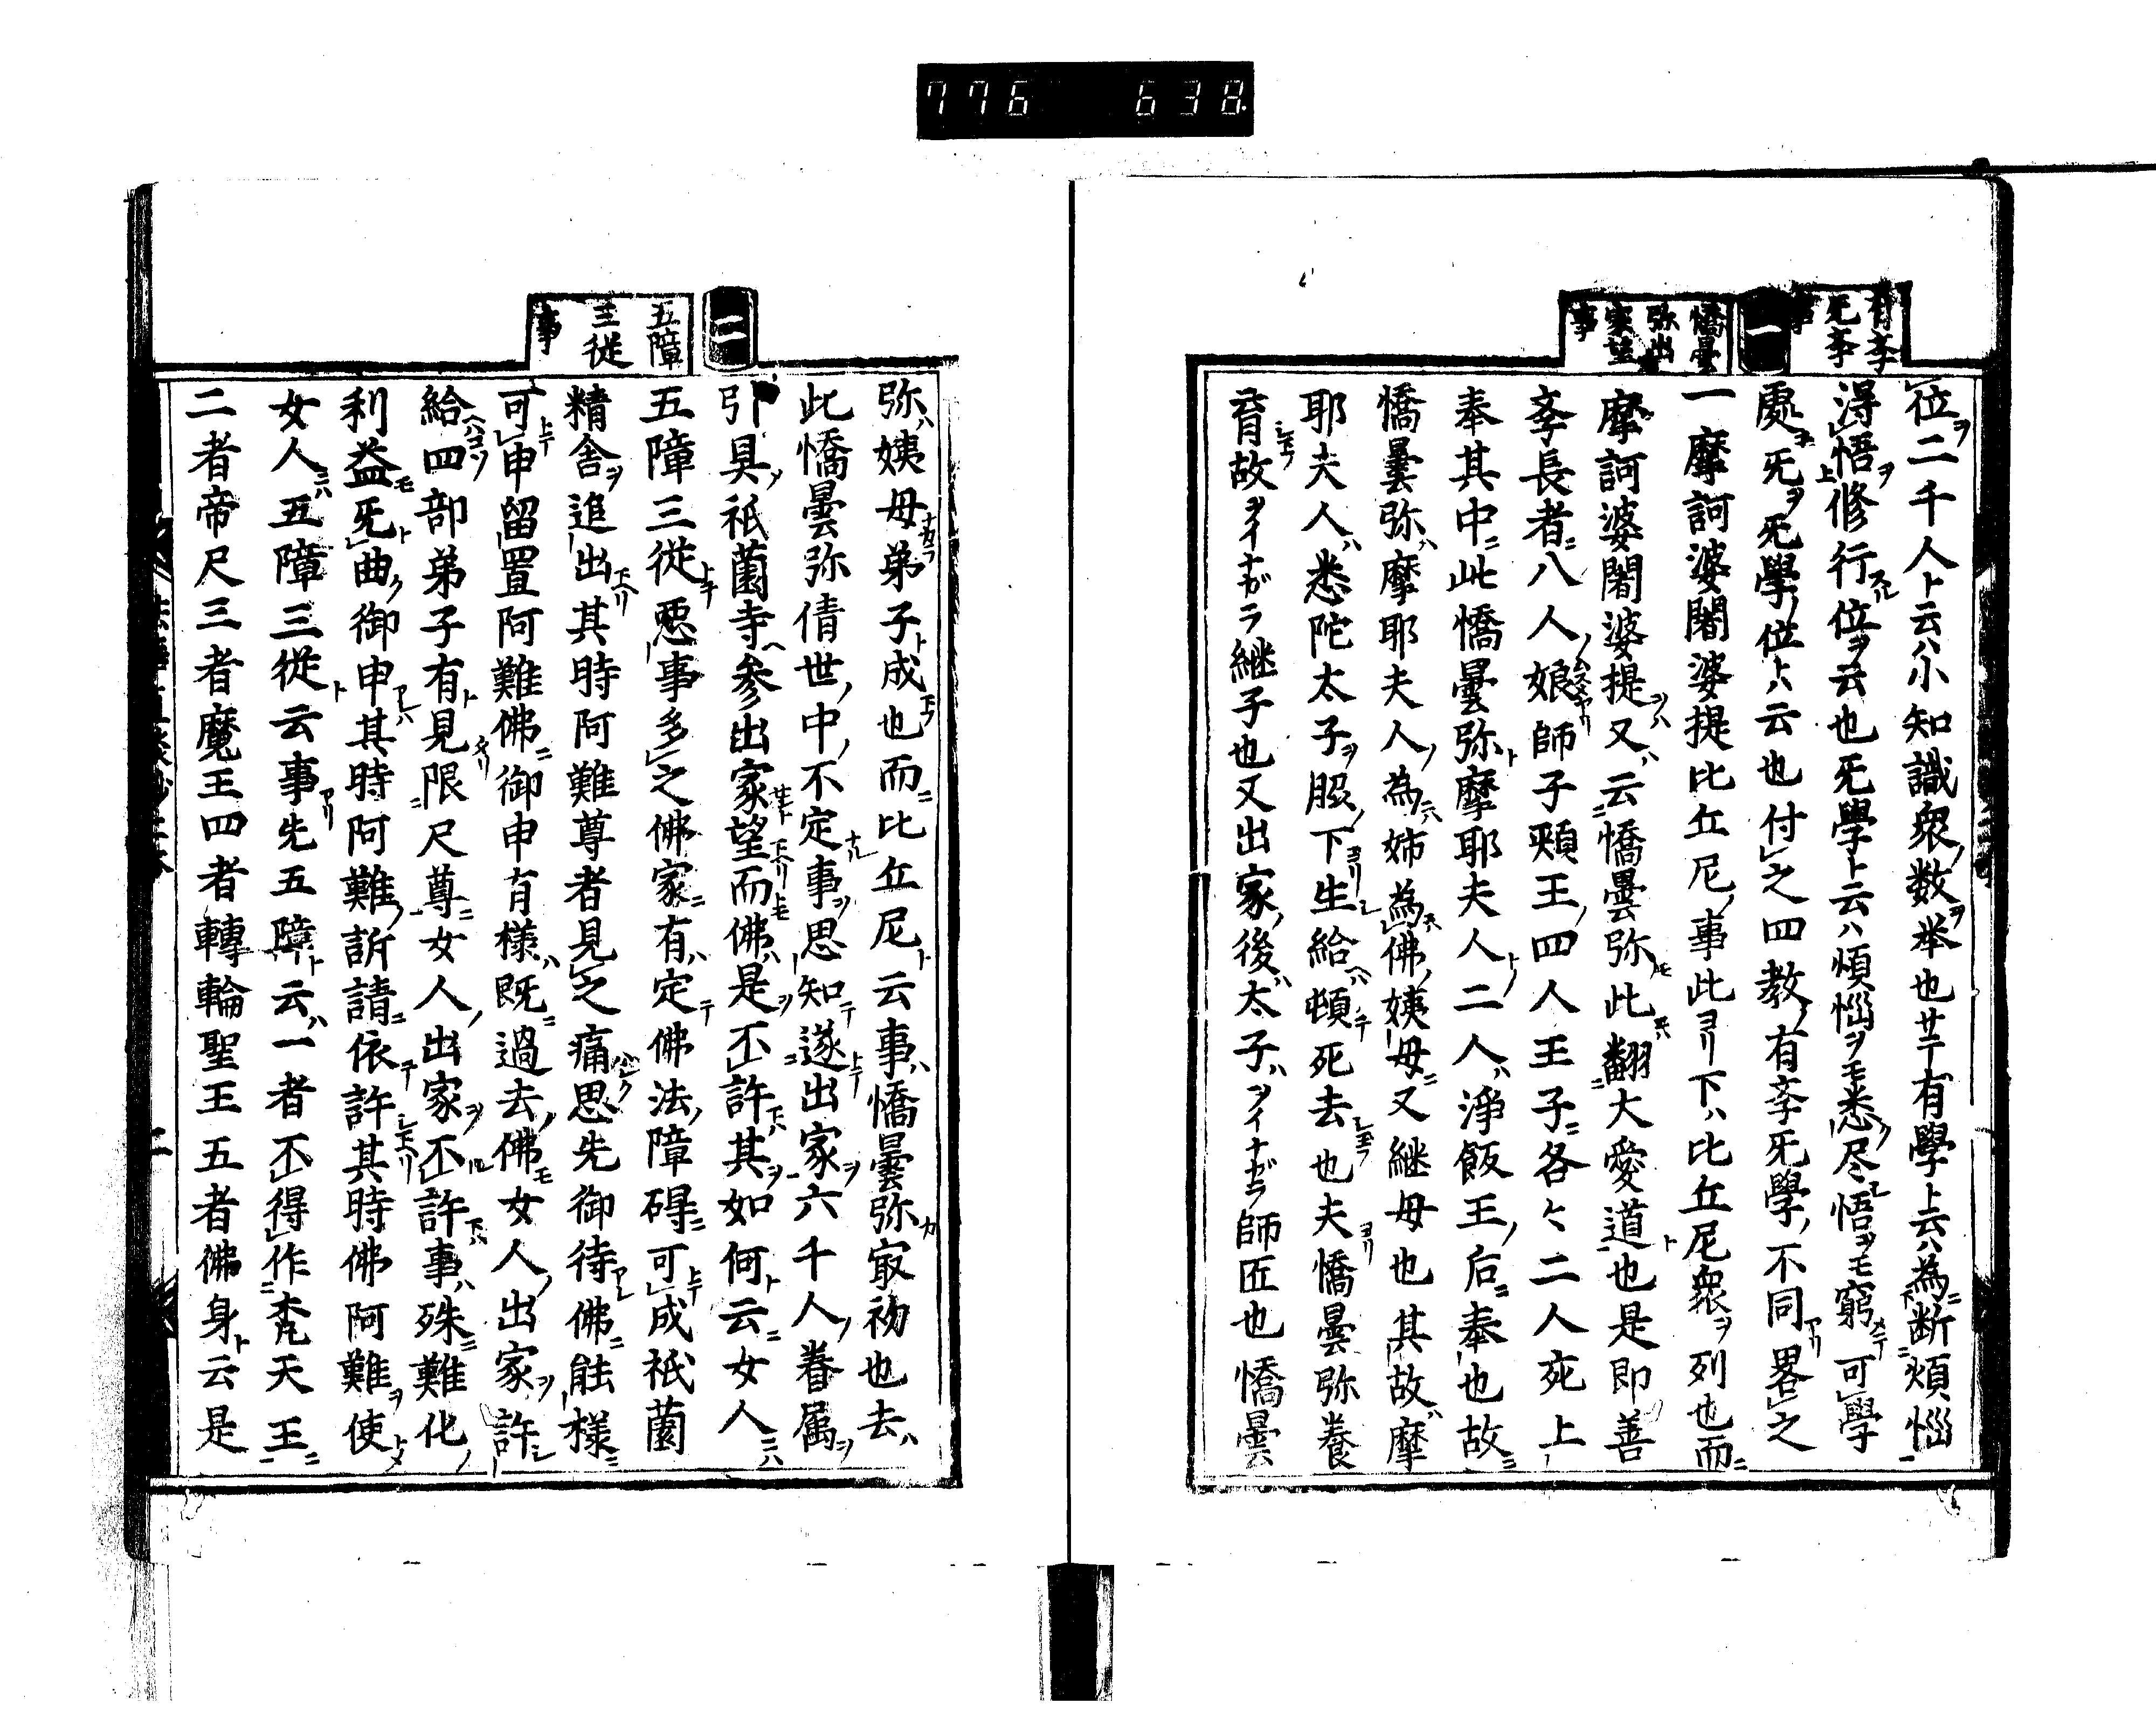 776 638
有斈
旡斈
事
一
憍曇
弥出
家望
事
位ヲ二千人ト云ハ小知識衆ノ数ヲ举也サテ有學ト云ハ為ニ断煩惱
淂悟ヲ修行スル位ヲ云也旡學ト云ハ煩惱ヲモ悉ク尽シ悟ヲモ窮メテ可學
處ヲ旡ヲ旡學ノ位トハ云也付之四教ノ有斈旡學ノ不同アリ畧之
一摩訶婆闍婆提比丘尼ノ事此ヨリ下ハ比丘尼衆ヲ列也而ニ
摩訶婆闍婆提ヲハ又ハ云憍曇弥モ此ニ翻大愛道ト也是即善
斈長者ニ八人ノ娘師子頬王ノ四人王子ニ各々二人宛上
奉其中ニ此憍曇弥ト摩耶夫人トノ二人ハ淨飯王ノ后ニ奉也故ニ
憍曇弥ハ摩耶夫人ノ為ニハ姉為佛ノ姨母ニ又継母也其故ハ摩
耶夫人ハ悉陀太子ヲ脵ノ下ヨリ生シ給ヘハ頓テ死去也夫ヨリ憍曇弥養
育故ヲイナガラ継子也又出家ノ後ハ太子ハヲイナガラ師匠也憍曇
二
五障
三従
事
弥ハ姨母ナカラ弟子ト成也而ニ比丘尼ト云事ハ憍曇弥カ㝡初也去ハ
此憍曇弥倩世ノ中ノ不定ナル事ヲ思知テ遂ニ出家ヲ六千人ノ眷属ヲ
引具ノ祇薗寺ヘ参出家望而佛ハ是ヲ不許其ヲ如何ト云ニ女人ニハ
五障三従トテ悪事多之佛家ニ有ハ定テ佛法ノ障碍ニ可成トテ祇薗
精舎ヲ追出其時阿難尊者見之痛思先御待アレ佛ニ能様ニ
可申トテ留置阿難佛ニ御申有様ハ既ニ過去ノ佛モ女人ノ出家ヲ許シ
給四部弟子有ト見タリ限ニ尺尊ニ女人ノ出家ヲ不許事ハ殊ニ難化ノ
利益モ旡ト曲ク御申アレハ其時阿難ノ訴請ニ依テ許其時佛阿難ヲ使トメ
女人ニハ五障三従ト云事アリ先五障ト云ハ一者不得作ニ梵天王ニ
二者帝尺三者魔王四者轉輪聖王五者佛身ト云是